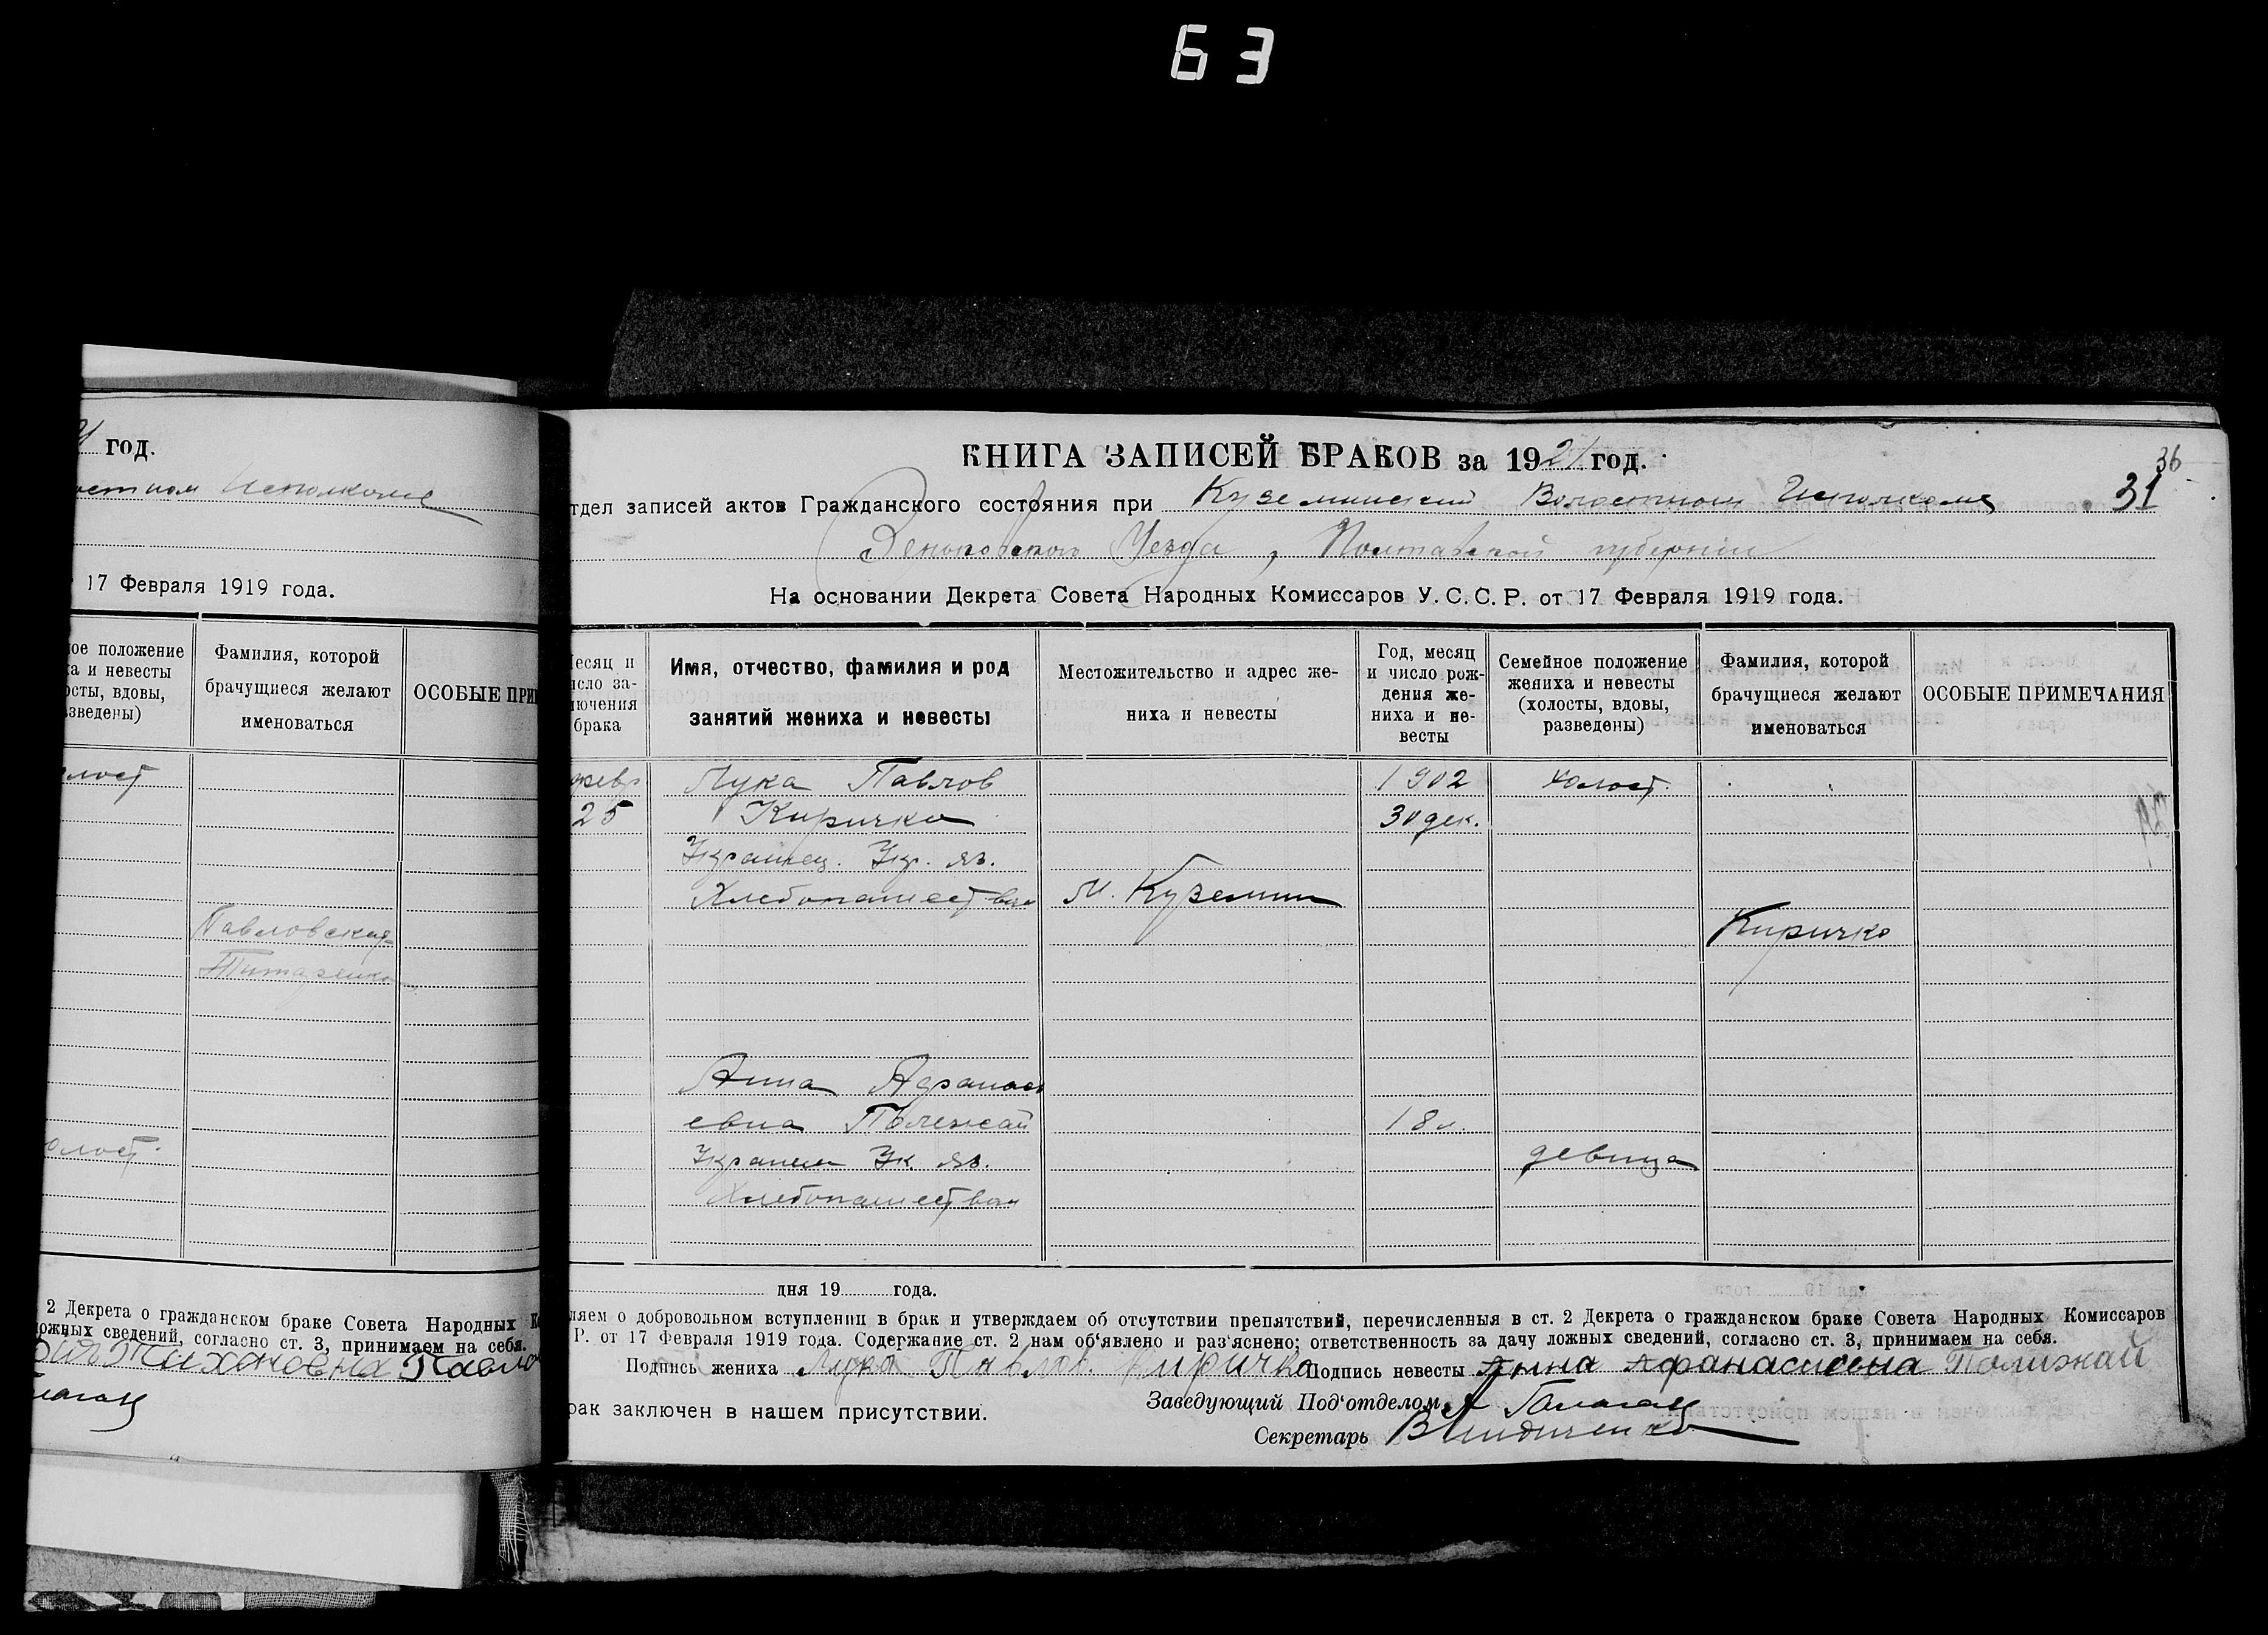 63
год.
Исполкоме
17 Февраля 1919 года.
ое положение
а и невесты
осты, вдовы,
азведены)
Фамилия, которой
брачущиеся желают
именоваться
ОСОБЫЕ ПРИ
лост
Павловская-
Титаренко
олост.
2 Декрета о гражданском браке Совета Народных К
ожных сведений, согласно ст. 3, принимаем на себя.
Тихоновна Павло
КНИГА ЗАПИСЕЙ БРАКОВ за 1921 год.
36
31
тдел записей актов Гражданского состояния при Куземинском Волостном Исполкоме
Зеньковского Уезда, Полтавской губернии
На основании Декрета Совета Народных Комиссаров У.С.С.Р. от 17 Февраля 1919 года.
есяц и
исло за-
лючения
брака
Имя, отчество, фамилия и род
занятий жениха и невесты
Местожительство и адрес же-
ниха и невесты
Год, месяц
и число рож-
дения же-
ниха и не-
весты
Семейное положение
жениха и невесты
(холосты, вдовы,
разведены)
Фамилия, которой
брачущиеся желают
именоваться
ОСОБЫЕ ПРИМЕЧАНИЯ
февр Лука Павлов 1902 холост.
25 Киричко 30 дек.
Украинец. Ук. яз.
Хлебопашество М. Куземин
Киричко
Анна Афанась
евна Полежай 18 л.
Ук. яз. девица
Хлебопашество
дня 19 года.
ляем о добровольном вступлении в брак и утверждаем об отсутствии препятствий, перечисленныя в ст. 2 Декрета о гражданском браке Совета Народных Комиссаров
Р. от 17 Февраля 1919 года. Содержание ст. 2 нам об‘явлено и раз‘яснено; ответственность за дачу ложных сведений, согласно ст. 3, принимаем на себя.
Подпись жениха Лука Павлов. Киричко Подпись невесты Анна Афанасиевна Полижай
Заведующий Под‘отделом
рак заключен в нашем присутствии.
Секретарь